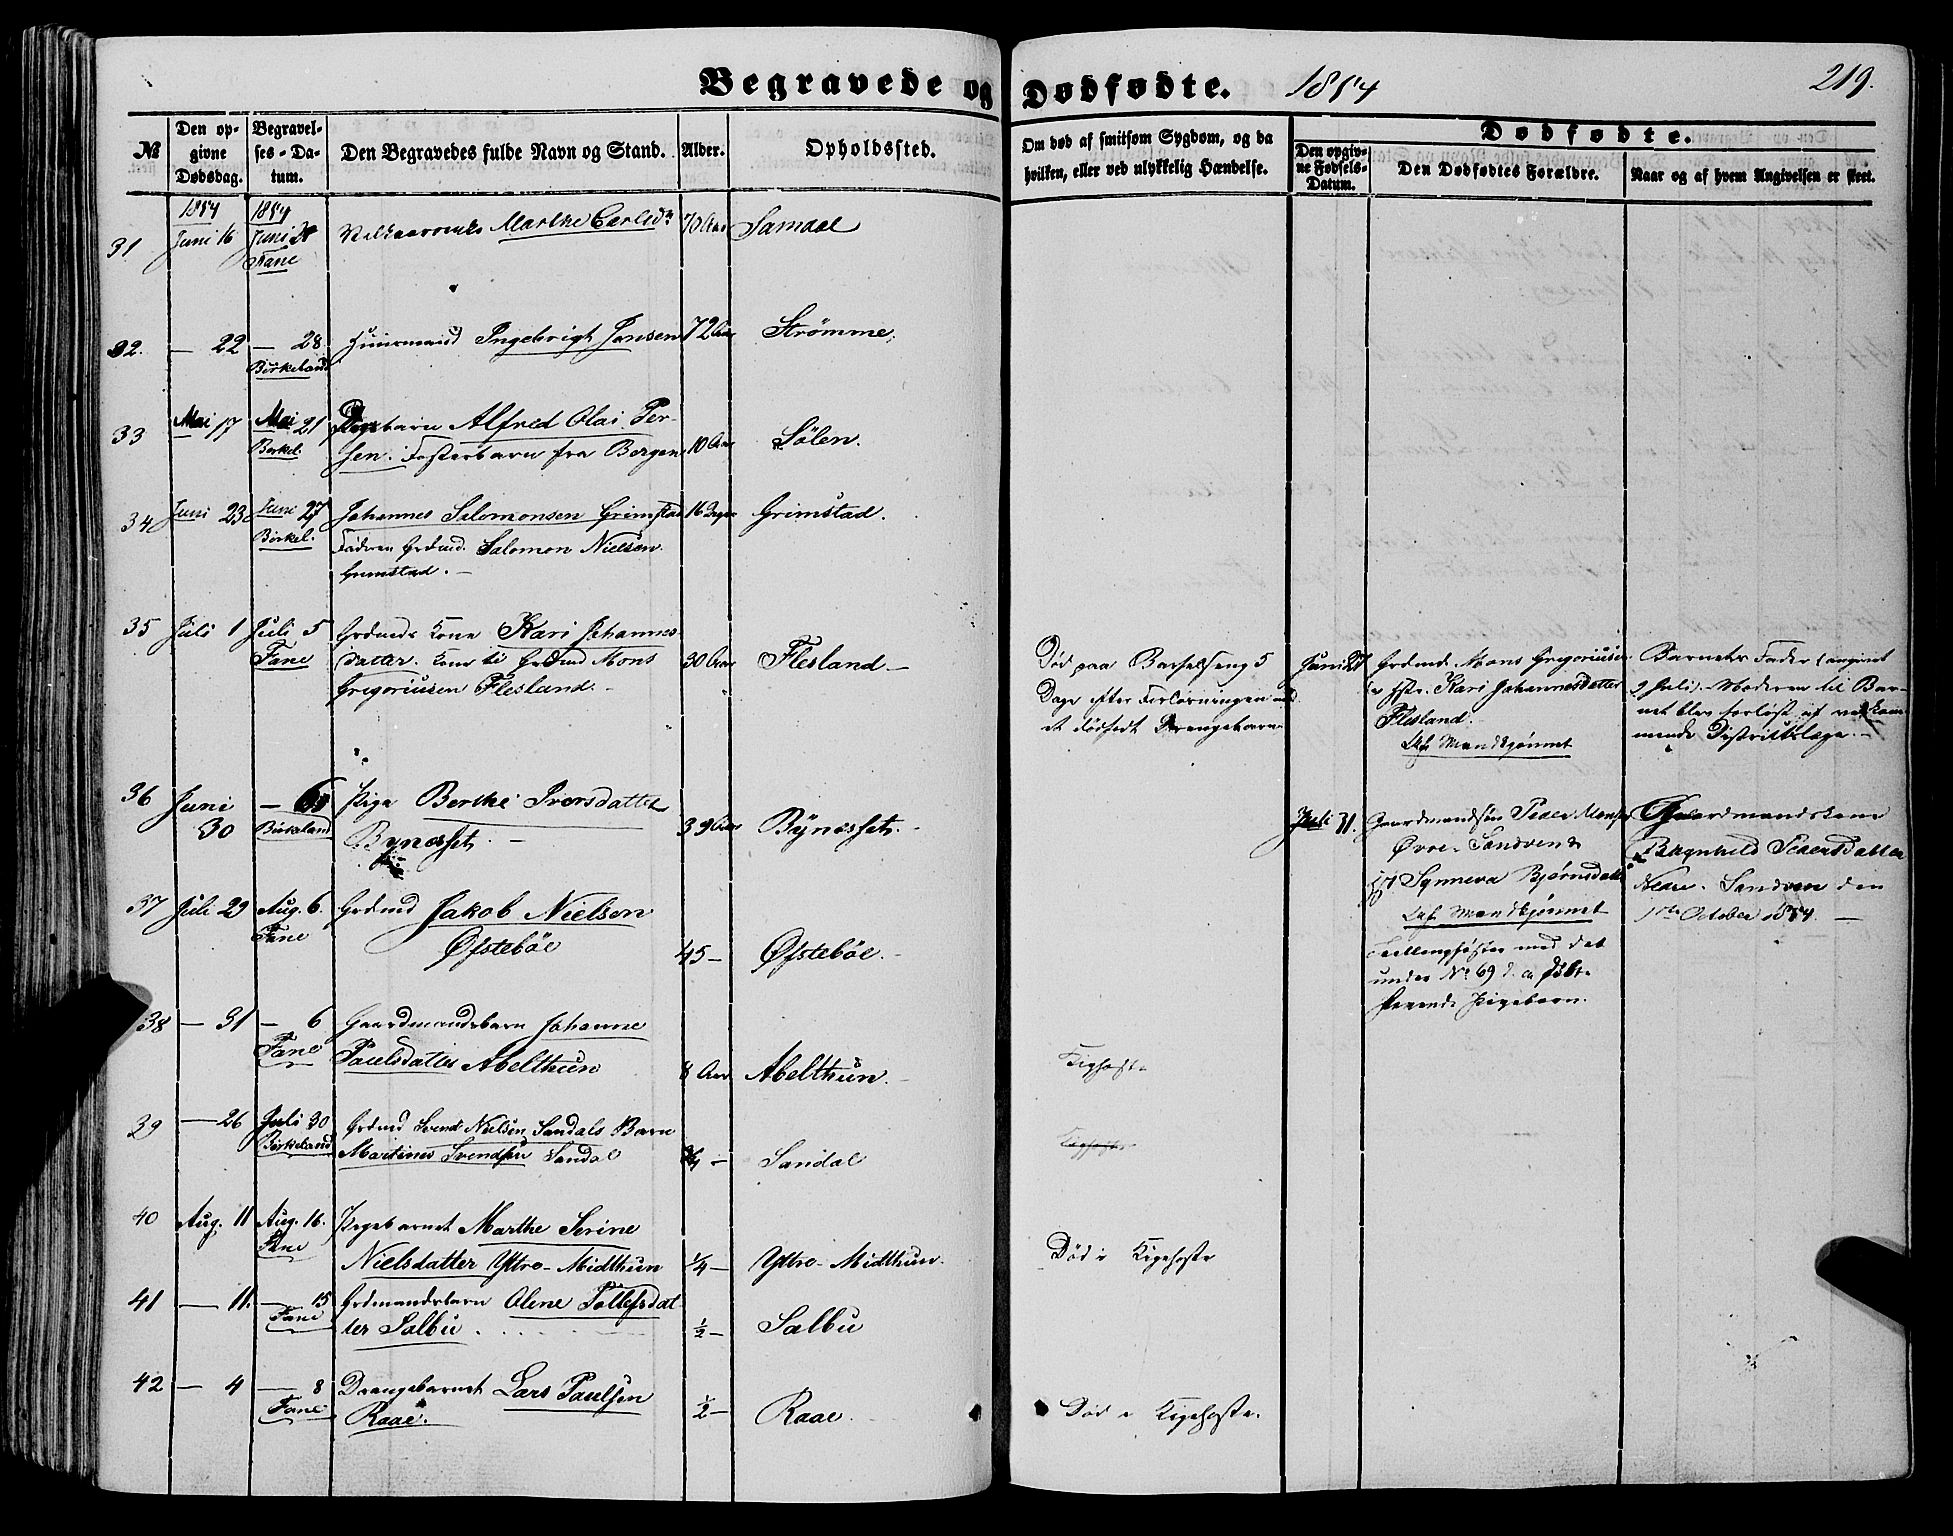 Begravede og Dødfødte. 1854 219.
№ Den opgivne Dødsdag. Begravelses-Datum. Den Begravedes fulde Navn og Stand. Alder. Opholdssted. Om død af smitsom Sygdom, og da hvilken, eller ved ulykkelig Hændelse. Dødfødte. Den opgivne Fødsels-Datum. Den Dødfødtes Forældre. Naar og af hvem Angivelsen er skeet.
1854 1854
31 Juni 16 Juni Fane Marthe Carlsd. 70 Aar Samdal
32. — 22 — 28. Birkeland Huusmand Ingebrigt Jansen 72 Aar Strømme.
33 Mai 17 Mai 21 Birkel. Alfred Olai Per-
sen. Fosterbarn fra Bergen 10 Aar Sölen.
34 Juni 23 Juni 27 Birkel. Johannes Salomonsen Grimstad 16 Dage Grimstad.
Faderen Grdmd. Salomon Nielsen
Grimstad. —
35 Juli 1 Juli 5 Fane Grdmds Kone Kari Johannes-
datter. Kone til Grdmd Mons 30 Aar Flesland —
Gregoriusen Flesland. —
Død paa Barselseng 5
Dage efter Forløsningen med
et dødfødt Drengebarn
Juni 27 Grdmd. Mons Gregoriusen
Kari Johannesdatter
Flesland.
Mandkjønnet
Barnets Fader (angivet
2 Juli). Moderen til Bar-
net blev forløst af vedkom-
mende Distriktslæge. —
36 Juni 30 — Birkeland Pige Berthe Iversdatter
Bynesset. — 39 Aar Bynesset. —
Juli 31. Gaardmandssøn Peder Monsen
Øvre-Sandven &
Synneva Bjørnsdatter
Mandkjønnet
Tvillingfoster med det
under № 69 d. a.
Pigebarn.
Gaardmandskone
Ragnhild Pedersdatter
Nedre-Sandven den
1ste October 1854. —
37 Juli 29 Aug. 6. Fane Grdmd Jakob Nielsen
Øfstebøe 45 — Øfstebøe. —
38 — 31 — 6 Fane Gaardmandsbarn Johanne
Paulsdatter Abelthun 8 Aar Abelthun. — Kighoste
39 — 26 Juli 30 Birkeland Grdmd Svend Nielsen Sandals Barn
Martines Svendsen Sandal 3/4 — Sandal Kighoste
40 Aug. 11 Aug. 16. Fane Pigebarnet Marthe Serine
Nielsdatter Yttre-Midthun 1/4 — Yttre-Midthun. Død i Kighoste
41 — 11. — 15 Fane Grdmandsbarn Olene Tollefsdat-
ter Salbu. 1/2 — Salbu
42 — 4 — 8 Fane Drengebarnet Lars Paulsen
Raae. 1/2 — Raae. Død i Kighoste.